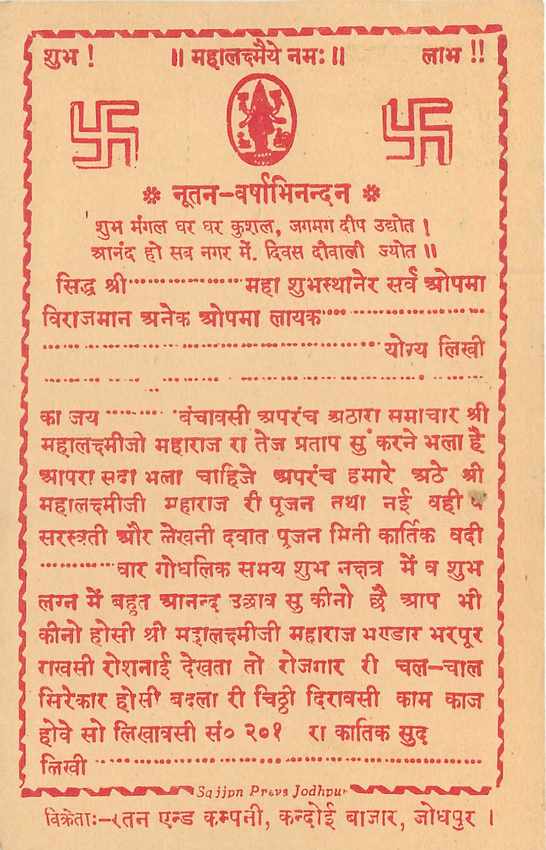 शुभ ! ॥ महालक्ष्मैये नमः ॥ लाभ !!
❉ नूतन-वर्षाभिनन्दन ❉
शुभ मंगल घर घर कुशल, जगमग दीप उद्योत ।
आनंद हो सब नगर में. दिवस दीवाली ज्योत ॥
सिद्ध श्री ................ महा शुभस्थानेर सर्व ओपमा
विराजमान अनेक ओपमा लायक ................
................ योग्य लिखी
................
का जय ........ बंचावसी अपरंच अठारा समाचार श्री
महालक्ष्मीजी महाराज रा तेज प्रताप सुं करने भला है
आपरा सदा भला चाहिजे अपरंच हमारे अठे श्री
महालक्ष्मीजी महाराज री पूजन तथा नई वही व
सरस्वती और लेखनी दवात पूजन मिती कार्तिक वदी
............ वार गोधलिक समय शुभ नक्षत्र में व शुभ
लग्न में बहुत आनन्द उछाव सु कीनो छै आप भी
कीनो होसी श्री महालक्ष्मीजी महाराज भण्डार भरपूर
राखसी रोशनाई देखता तो रोजगार री चल-चाल
सिरेकार होसी बदला री चिठ्ठी दिरावसी काम काज
होवे सो लिखावसी सं० २०१ रा कातिक सुद
लिखी ................
Sajjan Press Jodhpur
विक्रेताः-रतन एन्ड कम्पनी, कन्दोई बाजार, जोधपुर ।